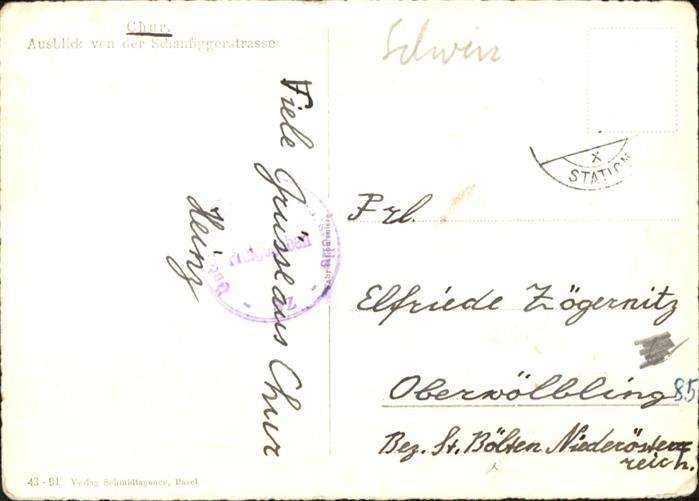 Chur.
Ausblick von der Schanfiggerstrasse
Schwin
Viele Grüsse aus Chur
Heinz
X
STATION
Frl.
Elfriede Zögernitz
Oberwölbling 85
Bez. St. Bölten Niederöster
reich.
43 - 91 Verlag Schmidtagence, Basel